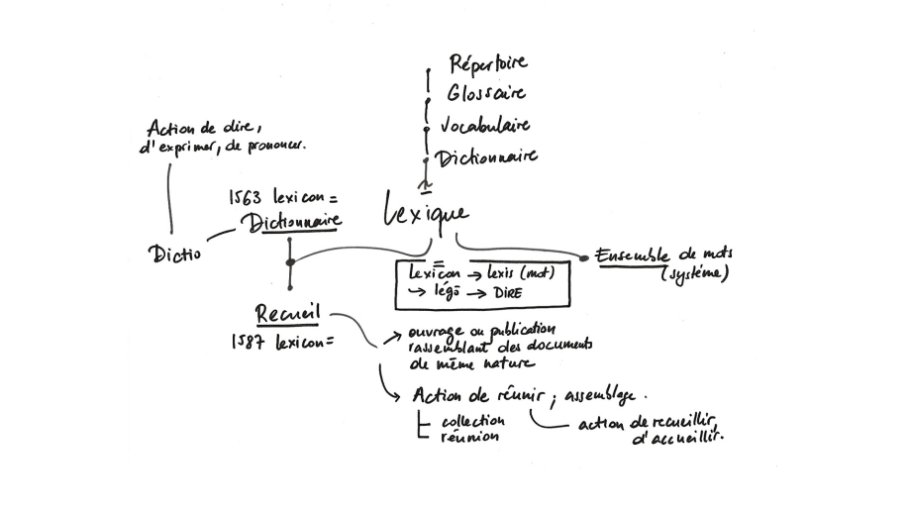 Répertoire
Glossaire
Vocabulaire
Dictionnaire
Lexique
Action de dire,
d'exprimer, de prononcer.
1563 lexicon =
Dictionnaire
Dictio
Recueil
1587 lexicon =
lexicon → lexis (mot)
↳ légō → DIRE
Ensemble de mots
(système)
→ ouvrage ou publication
rassemblant des documents
de même nature
Action de réunir ; assemblage.
collection
réunion
action de recueillir,
d'accueillir.